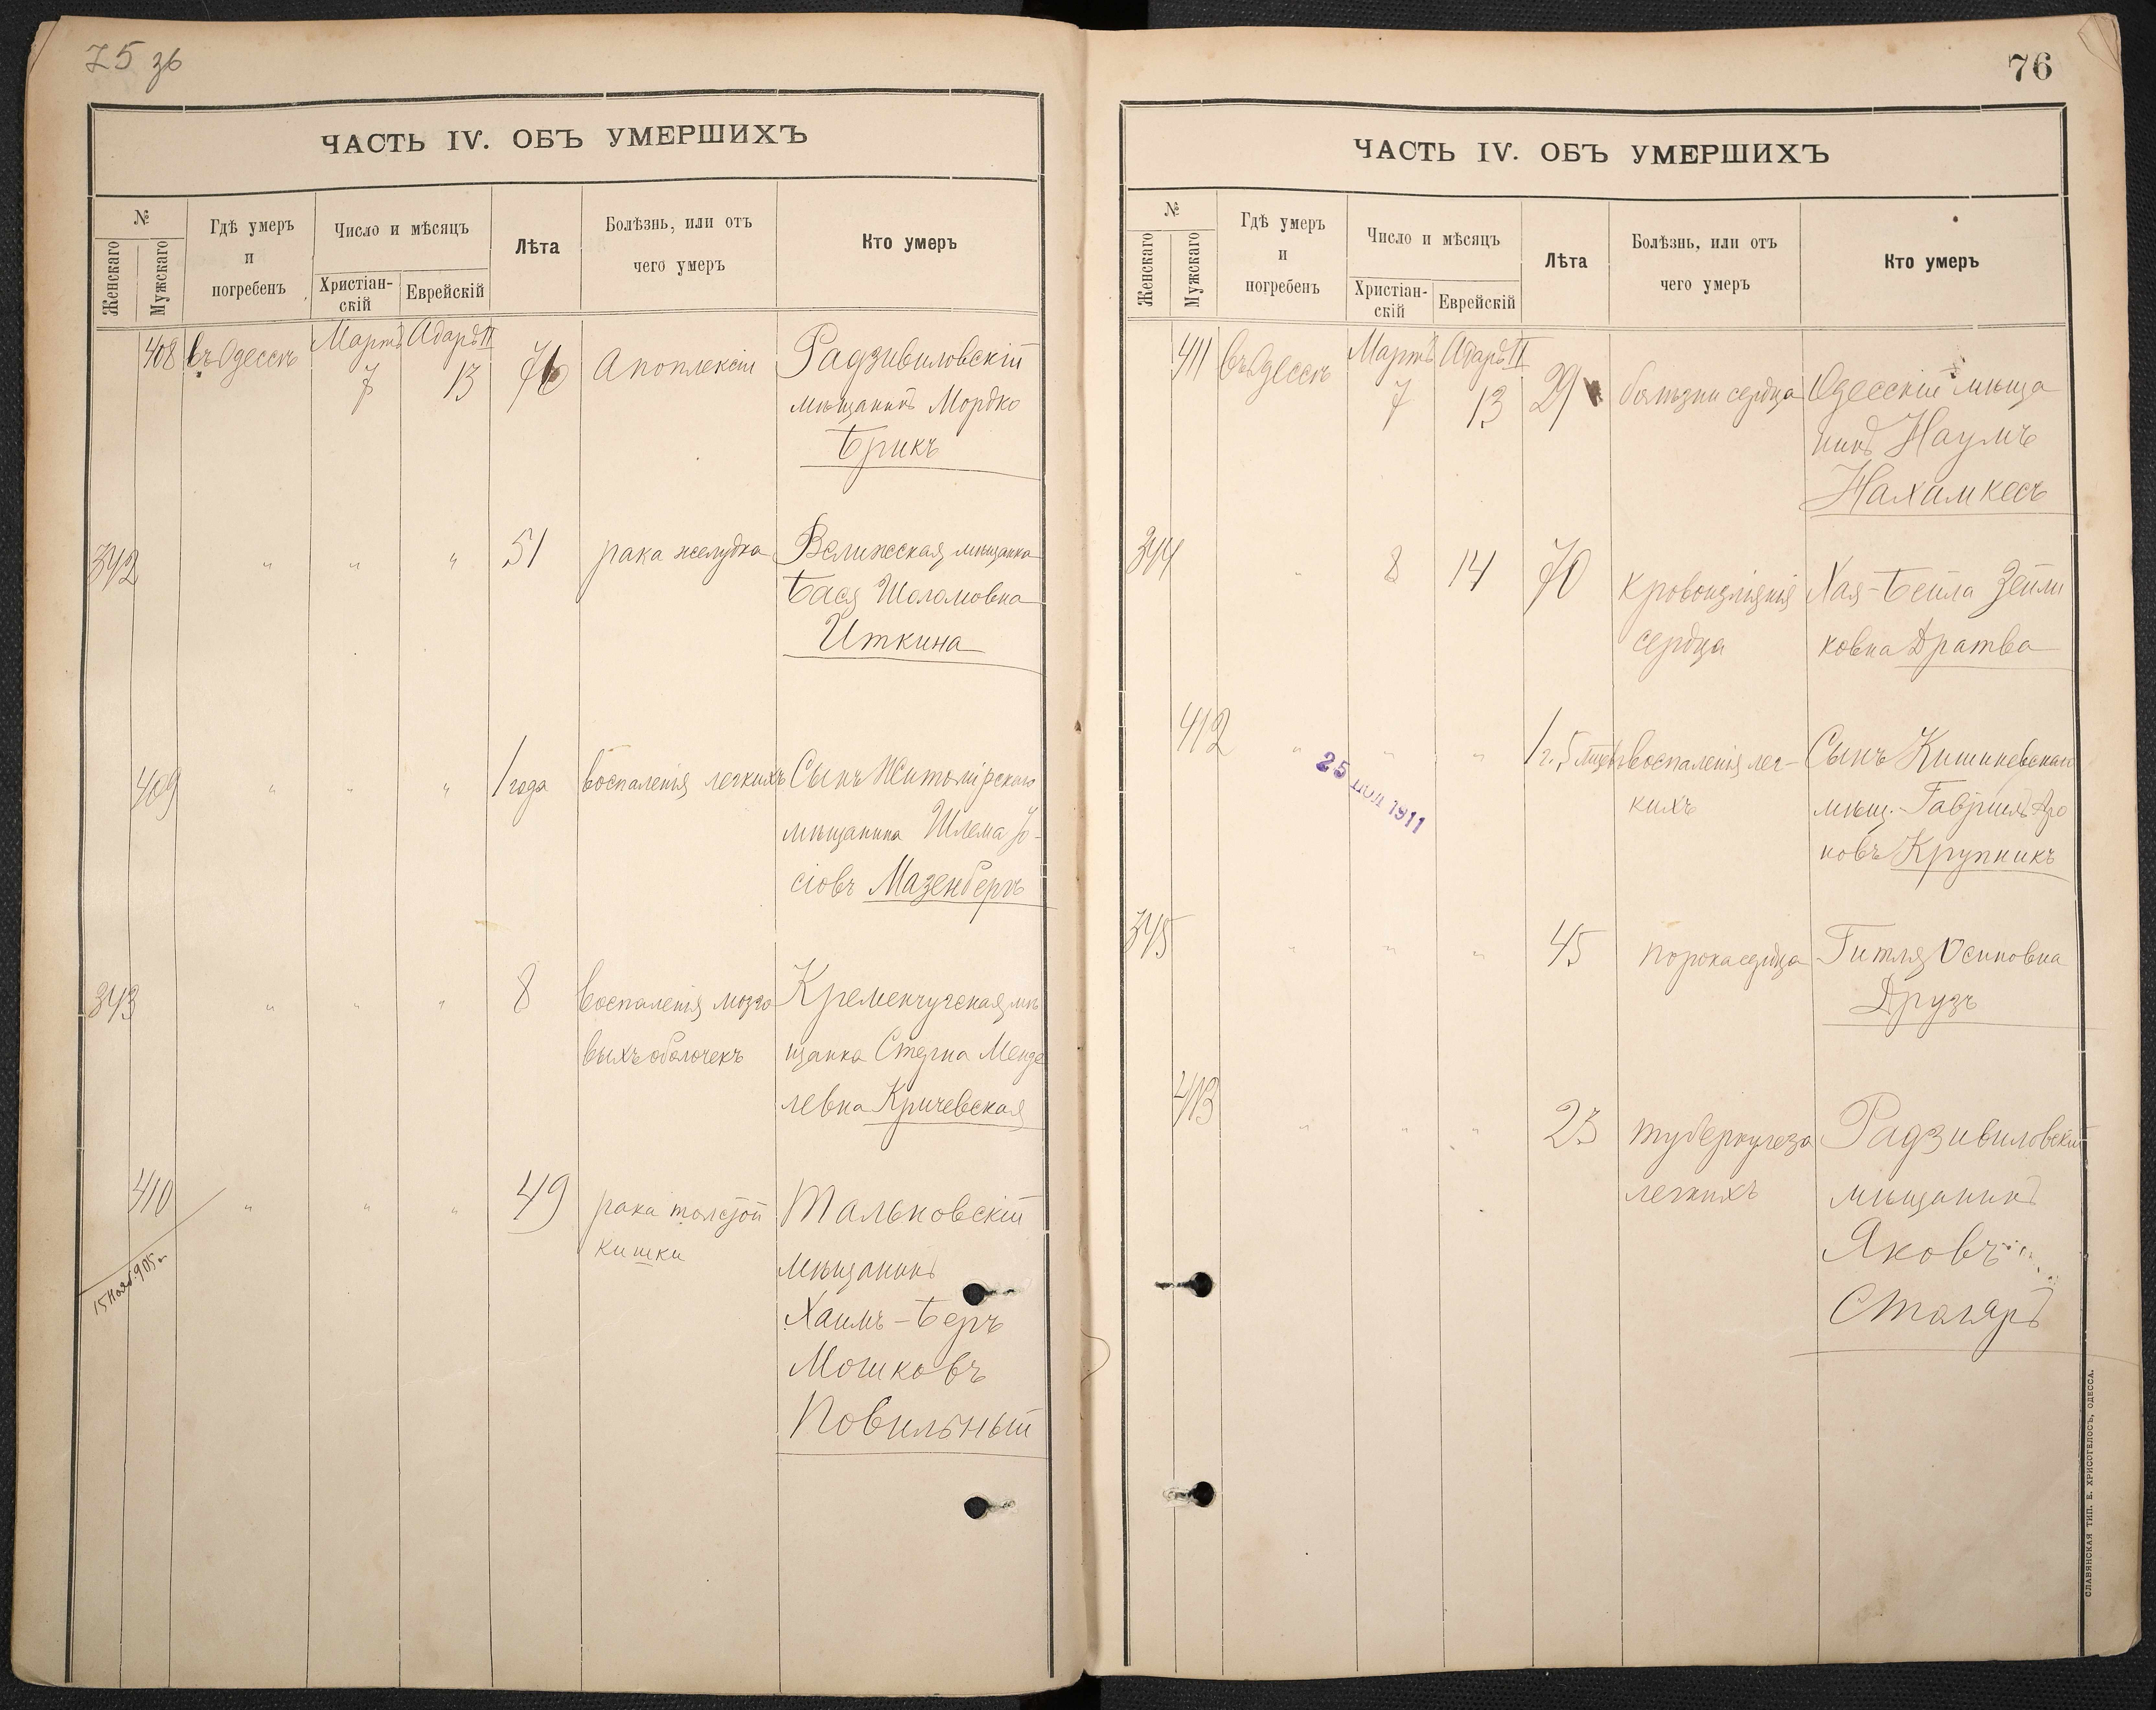 75 зв
ЧАСТЬ IV. ОБЪ УМЕРШИХЪ
№
Женскаго
Мужскаго
Гдѣ умеръ
и
погребенъ
Число и мѣсяцъ
Христіан-
скій
Еврейскій
Лѣта
Болѣзнь, или отъ
чего умеръ
Кто умеръ
408 въ Одессѣ Мартъ Адаръ II
7 13 76 Апоплексіи Радзивиловскій
мѣщанинъ Мордко
Брикъ
342 " " " 51 рака желудка Велижская мѣщанка
Бася Шоломовна
Иткина
409 " " " 1 года воспаленія легкихъ Сынъ Житомірскаго
мѣщанина Шлема Іо-
сіовъ Мазенбергъ
343 " " " 8 воспаленія мозго Кременчугская мѣ
выхъ оболочекъ щанка Стерна Менде
левна Кричевская
410 " " " 49 рака толстой Тальновскій
кишки
мѣщанинъ
Хаимъ-Беръ
Мошковъ
Повильный
15 905 г.
76
ЧАСТЬ IV. ОБЪ УМЕРШИХЪ
№
Женскаго
Мужскаго
Гдѣ умеръ
и
погребенъ
Число и мѣсяцъ
Христіан-
скій
Еврейскій
Лѣта
Болѣзнь, или отъ
чего умеръ
Кто умеръ
411 въ Одессѣ Мартъ Адаръ II
7 13 29 болѣзни сердца Одесскій мѣща
нинъ Наумъ
Нахамкесъ
344 " 8 14 70 кровоизліянія Хая-Бейла Зейли
сердца ковна Дратва
412 " " " 1 г. 5 мѣсяц воспаленія лег- Сынъ Кишиневскаго
кихъ мѣщ. Гавріилъ Аро
новъ Крупникъ
25 1911
345 " " " 45 порока сердца Гитля Осиповна
Друзъ
413 " " " 23 туберкулеза Радзивиловскій
легкихъ мѣщанинъ
Яковъ
Столяръ
СЛАВЯНСКАЯ ТИП. Е. ХРИСОГЕЛОСЪ, ОДЕССА.